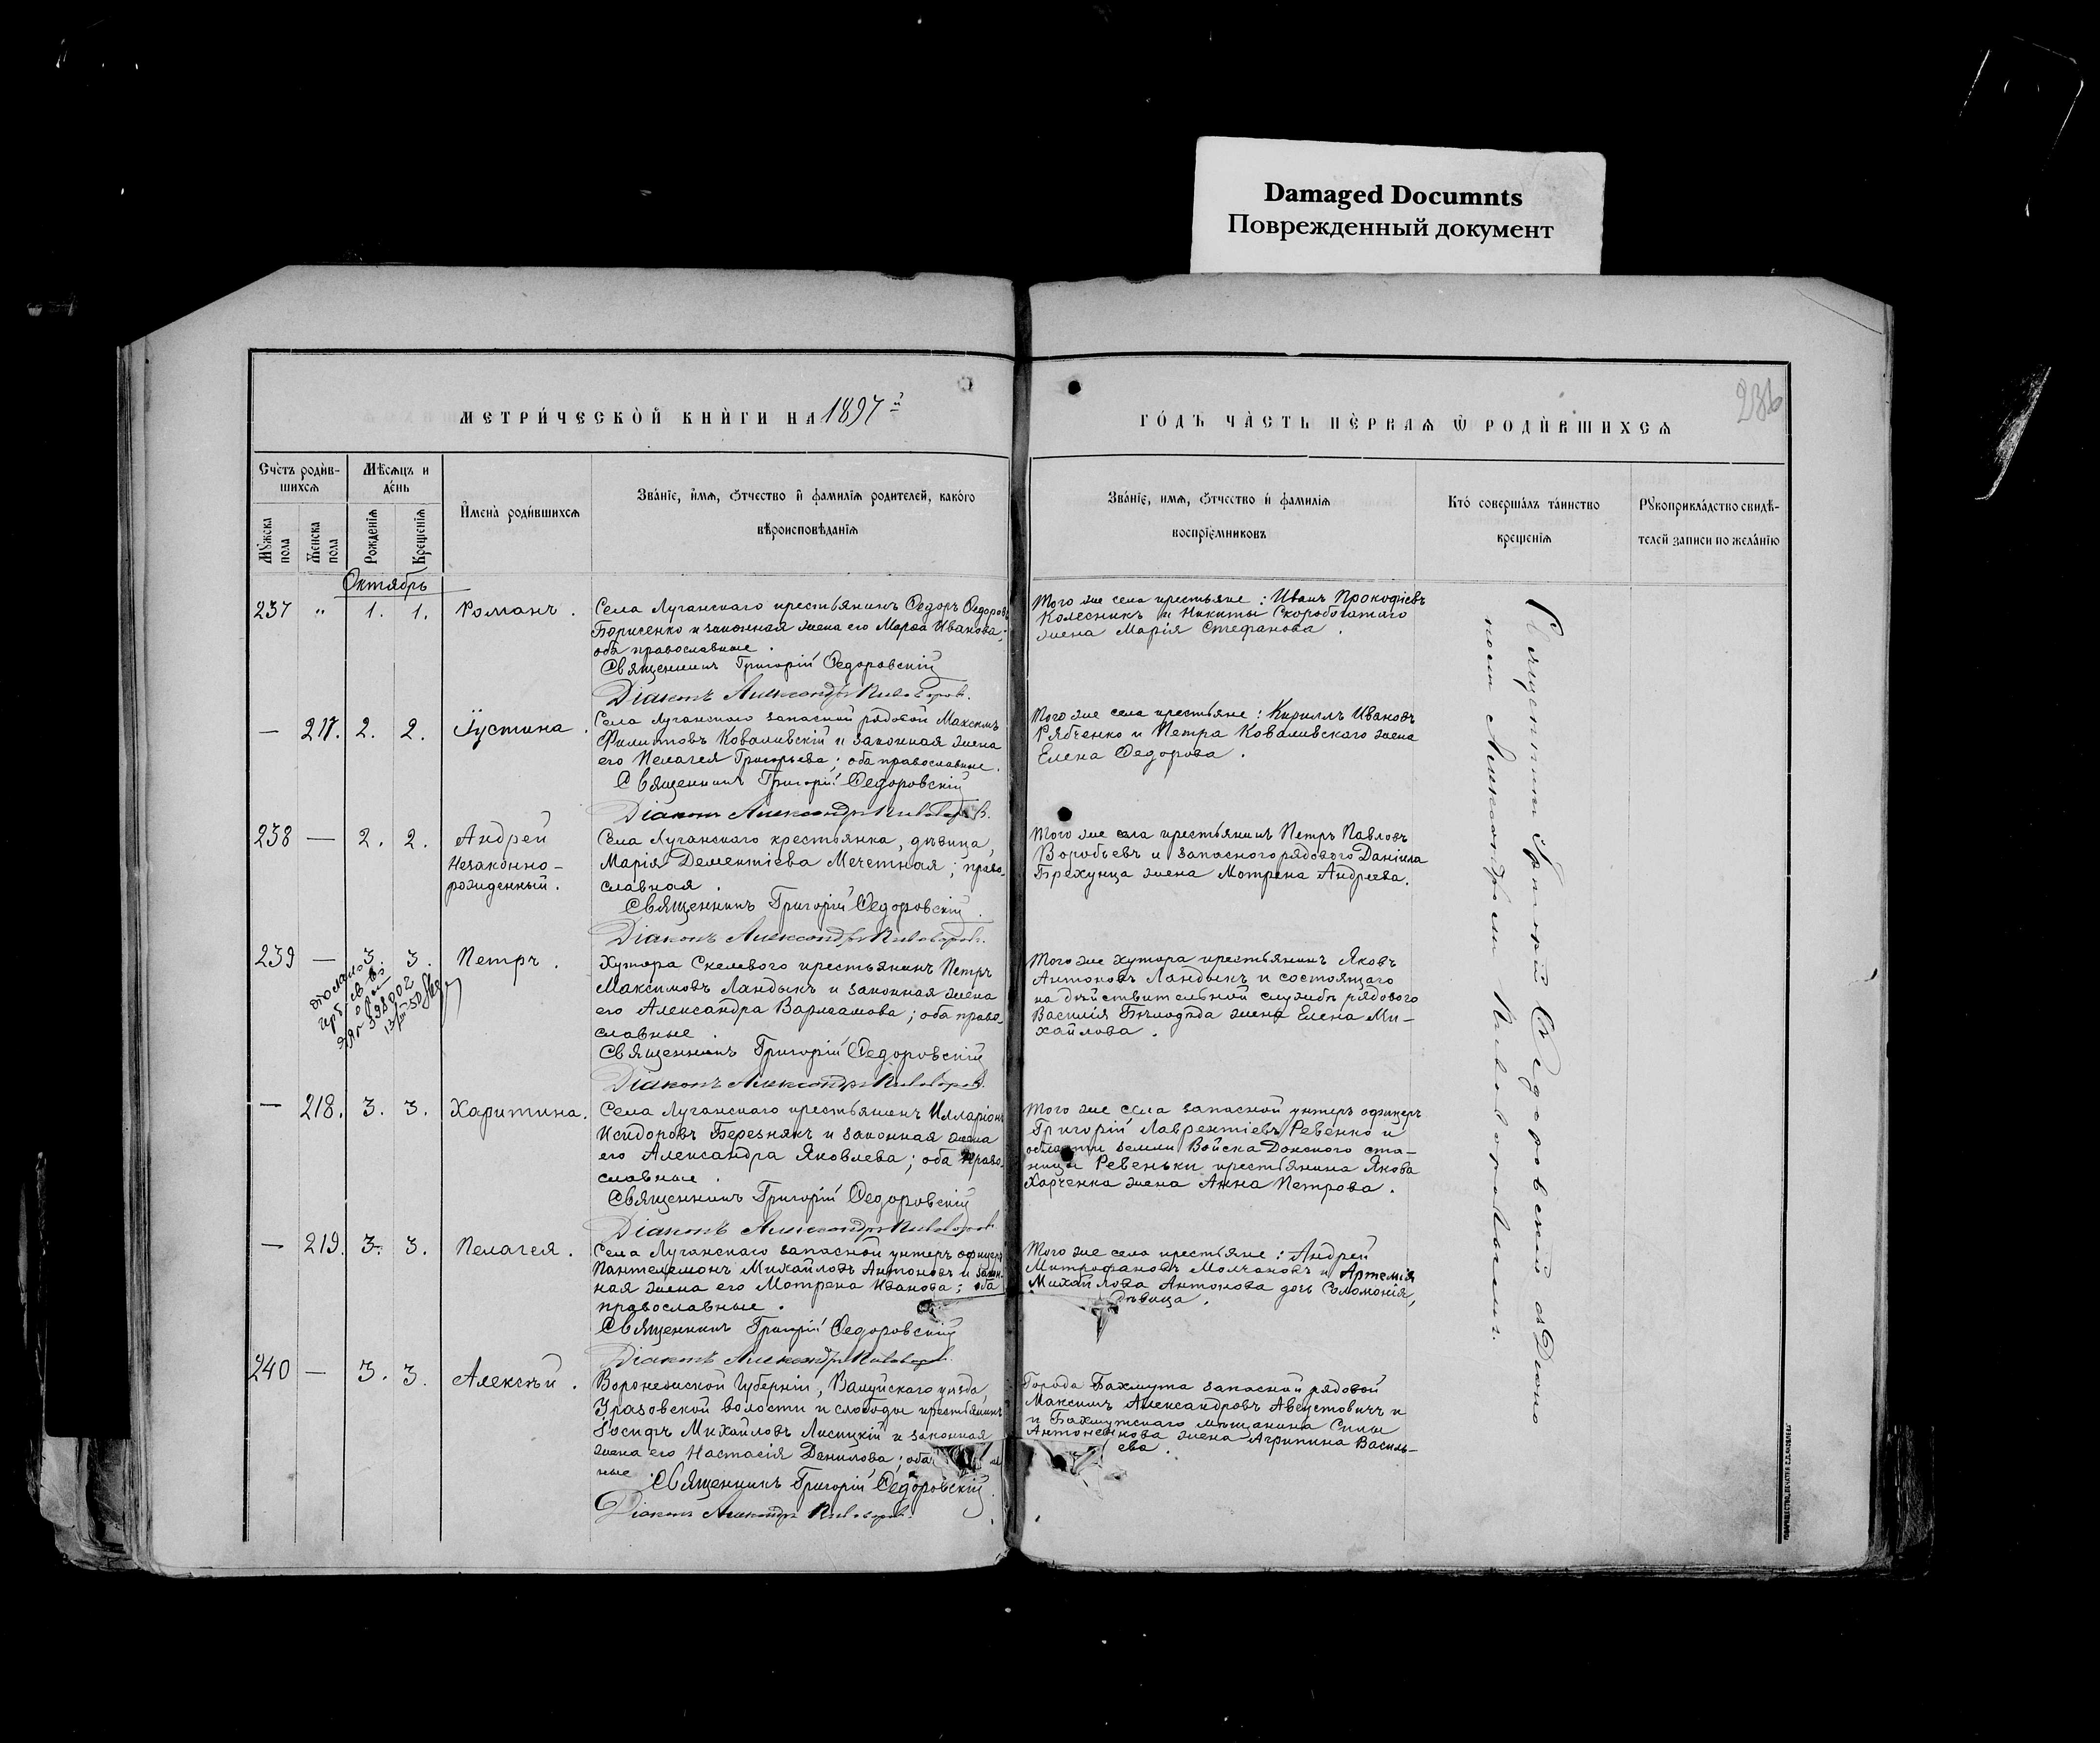 Damaged Documnts
Поврежденный документ
МЕТРИ́ЧЕСКО̀Й КНЍГИ НА 1897 й
ГО́ДЪ ЧА̀СТЬ ПЀРВАѦ Ѡ҆ РОДИ́ВШИХСѦ
236
Сче́тъ роди́в-
шихсѧ
Мѣ́сѧцъ и
де́нь
Мꙋ́жеска
пола
Же́нска
пола
Рожде́нїѧ
Креще́нїѧ
И҆мена̀ роди́вшихсѧ
Зва́нїе, и҆́мѧ, ѻ҆́тчество и҆ фами́лїѧ родителей, како́го
вѣроисповѣ́данїѧ
Зва́нїе, имѧ, ѻ҆́тчество и҆ фами́лїѧ
воспрїе́мниковъ
Кто́ соверша́лъ та́инство
креще́нїѧ
Рꙋкоприкла́дство свидѣ́-
телей записи по жела́нїю
Октябрь
237 " 1. 1. Романъ.
Села Луганскаго крестьянинъ Ѳедоръ Ѳедоровъ
Борисенко и законная жена его Марѳа Иванова;
оба православные.
Священникъ Григорій Ѳедоровскій
Діаконъ Александръ Пивоваровъ.
Того же села крестьяне: Иванъ Прокофіевъ
Колесникъ и Никиты Скоробогатаго
жена Марія Стефанова.
— 217. 2. 2. Іустина.
Села Луганскаго запасной рядовой Максимъ
Филиповъ Коваливскій и законная жена
его Пелагея Григорьева; оба православные.
Священникъ Григорій Ѳедоровскій
Діаконъ Александръ Пивоваровъ.
Того же села крестьяне: Кириллъ Ивановъ
Рябченко и Петра Коваливскаго жена
Елена Ѳедорова.
238 — 2. 2. Андрей
Незаконно-
рожденный.
Села Луганскаго крестьянка, дѣвица,
Марія Дементіева Мечетная; право-
славная.
Священникъ Григорій Ѳедоровскій.
Діаконъ Александръ Пивоваровъ.
Того же села крестьянинъ Петръ Павловъ
Воробьевъ и запасного рядового Даніила
Брехунца жена Мотрена Андреева.
239 — 3. 3. Петръ.
398002
Хутора Скелевого крестьянинъ Петръ
Максимовъ Ландыкъ и законная жена
его Александра Варлаамова; оба право-
славные.
Священникъ Григорій Ѳедоровскій
Діаконъ Александръ Пивоваровъ.
Того же хутора крестьянинъ Яковъ
Антоновъ Ландыкъ и состоящаго
на дѣйствительной службѣ рядового
Василія Бѣлодѣда жена Елена Ми-
хайлова.
— 218. 3. 3. Харитина.
Села Луганскаго крестьянинъ Илларіонъ
Исидоровъ Березнякъ и законная жена
его Александра Яковлева; оба право-
славные.
Священникъ Григорій Ѳедоровскій
Діаконъ Александръ Пивоваровъ
Того же села запасной унтеръ офицеръ
Григорій Лаврентіевъ Ревенко и
области земли Войска Донского ста-
ницы Ревеньки крестьянина Якова
Харченка жена Анна Петрова.
— 219. 3. 3. Пелагея.
Села Луганскаго запасной унтеръ офицеръ
Пантелемонъ Михайловъ Антоновъ и закон-
ная жена его Мотрена Иванова; оба
православные.
Священникъ Григорій Ѳедоровскій
Діаконъ Александръ Пивоваров.
Того же села крестьяне: Андрей
Митрофановъ Молчановъ и Артемія
Михайлова Антонова дочь Соломонія,
дѣвица.
240 — 3. 3. Алексѣй.
Воронежской Губерніи, Валуйскаго уѣзда,
Уразовской волости и слободы крестьянинъ
Іосифъ Михайловъ Лисицкій и законная
жена его Настасія Данилова; оба
ные.
Священникъ Григорій Ѳедоровскій.
Діаконъ Александръ Пивоваровъ.
Города Бахмута запасной рядовой
Максимъ Александровъ Августовичъ и
и Бахмутскаго мѣщанина Силы
Антоненкова жена Агрипина Василь-
ева.
Священникъ Григорій Ѳедоровскій съ Діако-
номъ Александромъ Пивоваровымъ.